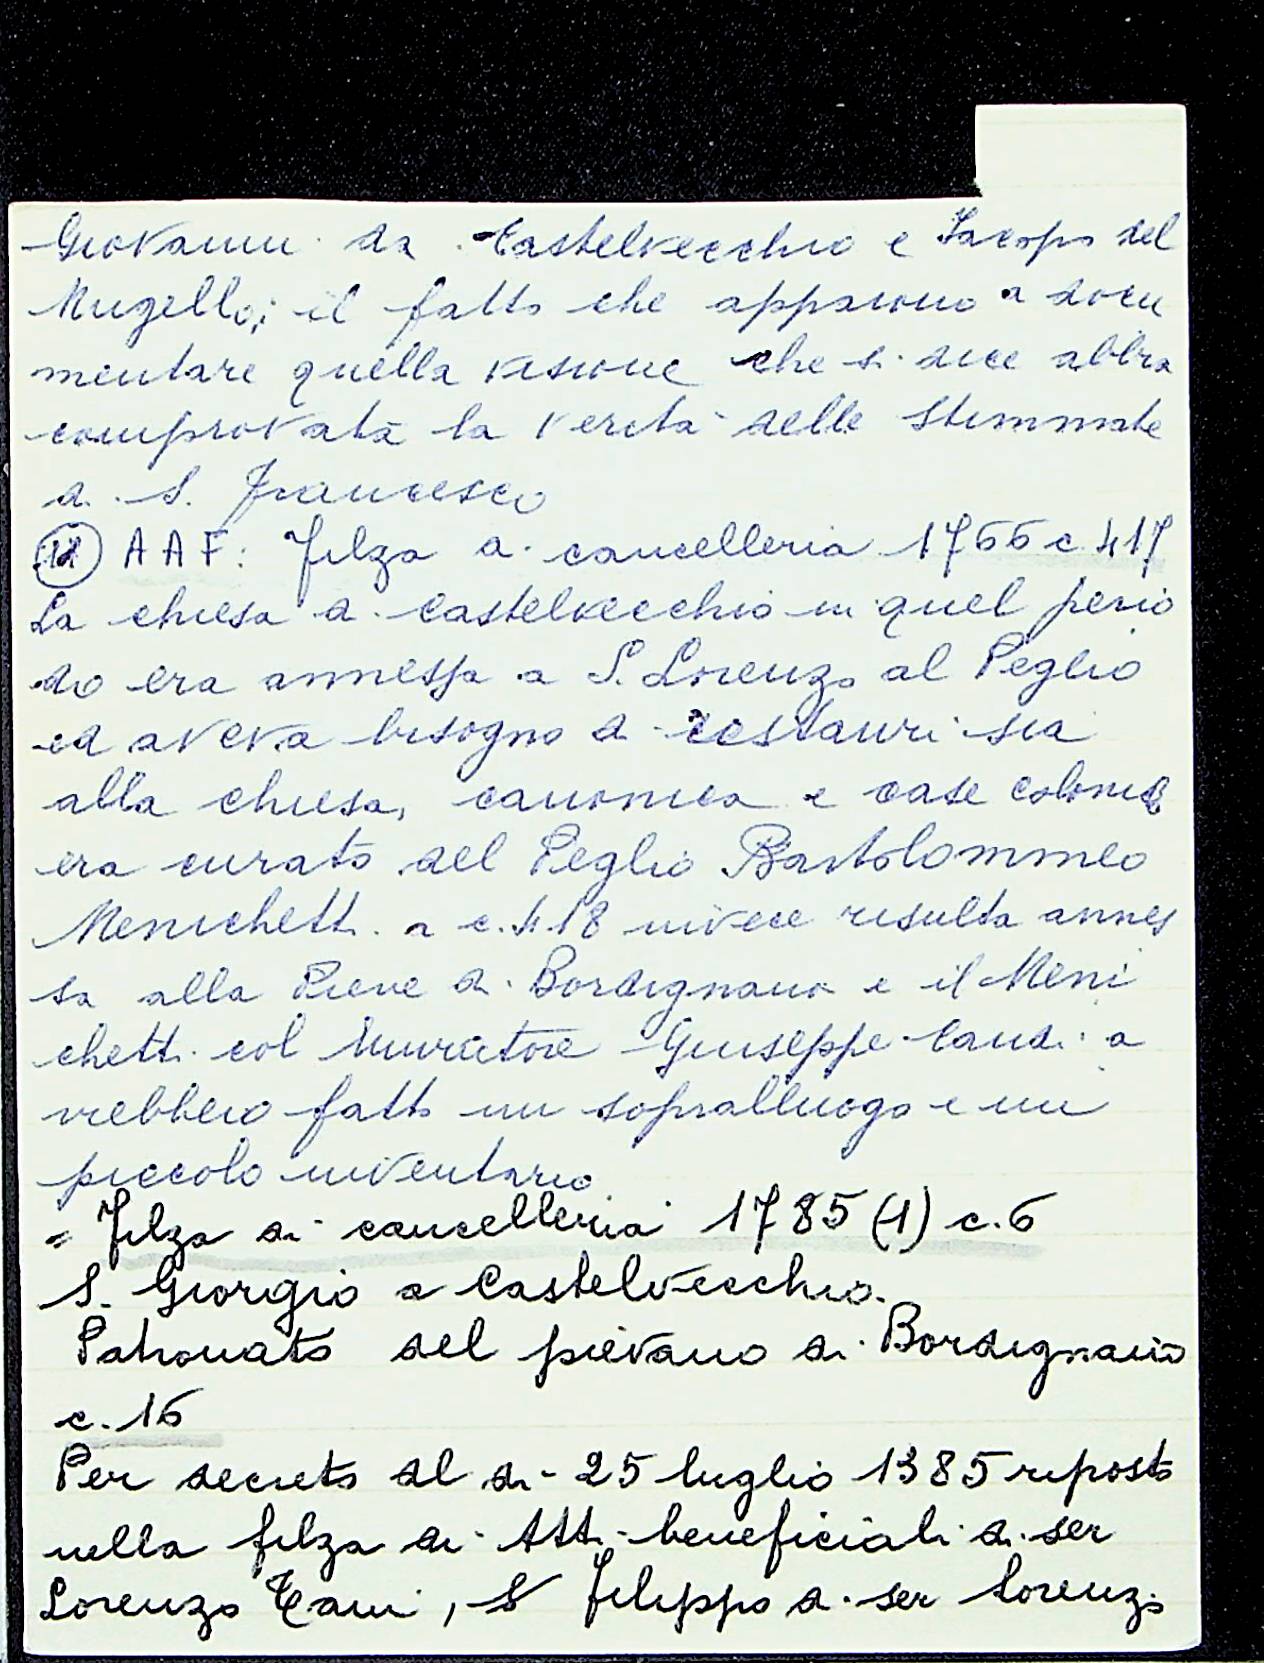 Giovanni da Castelvecchio e Jacopo del
Mugello; il fatto che appaiono a docu
mentare quella visione che si dice abbia
comprovata la verità delle stimmate
di S. Francesco
(12) A A F: Filza di cancelleria 1766 c. 417
La chiesa di Castelvecchio in quel perio
do era annessa a S. Lorenzo al Peglio
ed aveva bisogno di restauri sia
alla chiesa, canonica e case coloniche
era curato del Peglio Bartolommeo
Menichetti. a c. 418 invece risulta annes
sa alla Pieve di Bordignano e il Meni
chetti col Muratore Giuseppe a
vrebbero fatto un sopralluogo e un
piccolo inventario
= Filza di cancelleria 1785 (1) c. 6
S. Giorgio a Castelvecchio.
Patronato del pievano di Bordignano
c. 16
Per decreto del di 25 luglio 1385 riposto
nella filza di Atti beneficiali di ser
Lorenzo Tani, S Filippo di ser Lorenzo